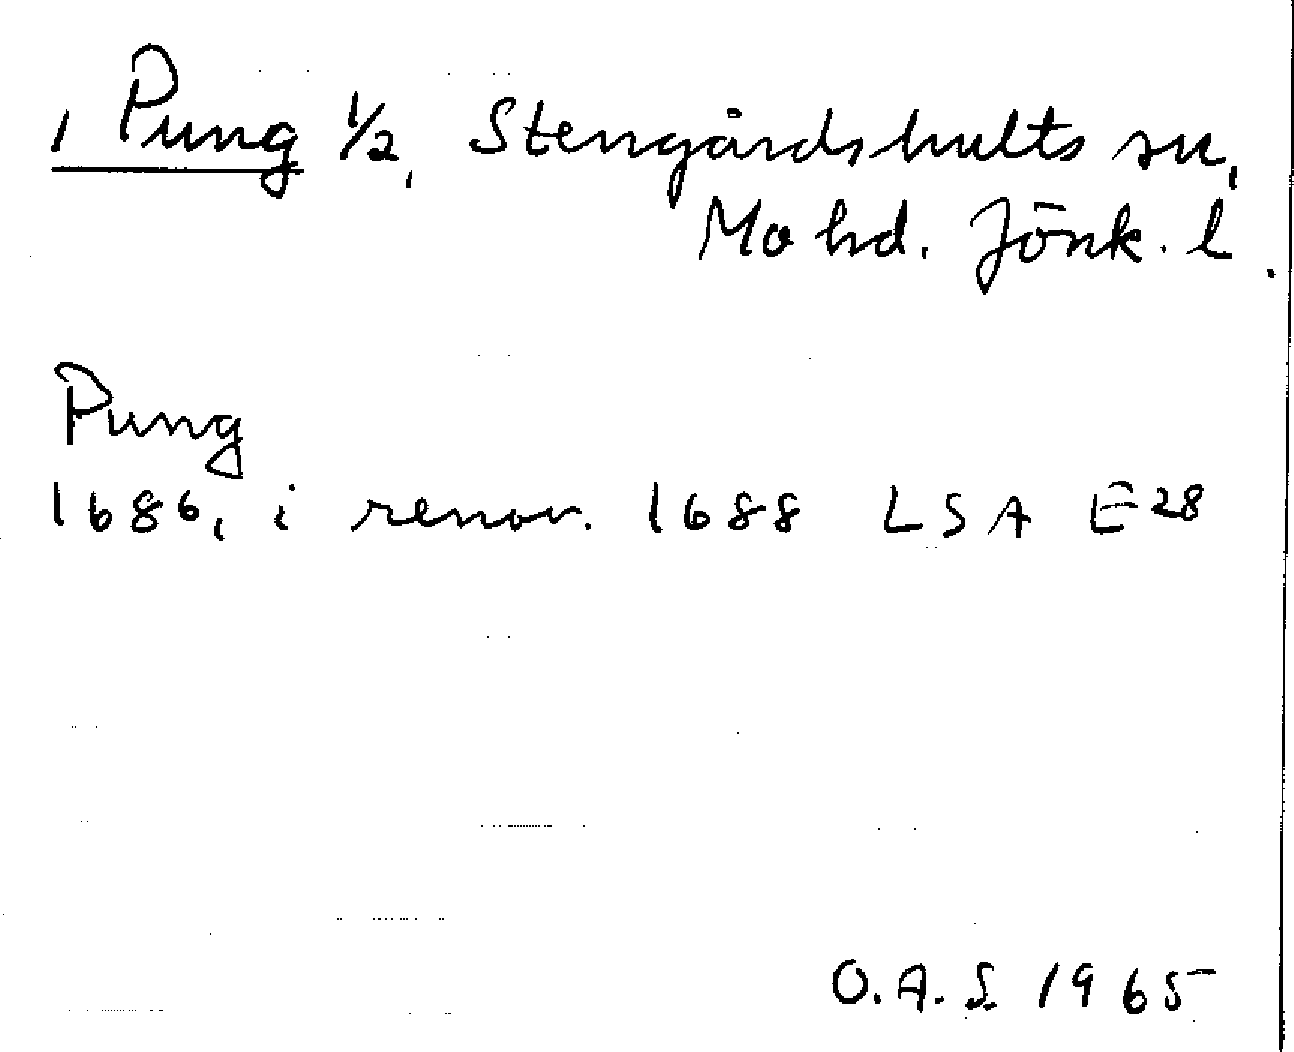 1 Pung 1/2, Stengårdshults sn,
Mo hd. Jönk. l.
Pung
1686, i renov. 1688 LSA E28
O.A.S. 1965